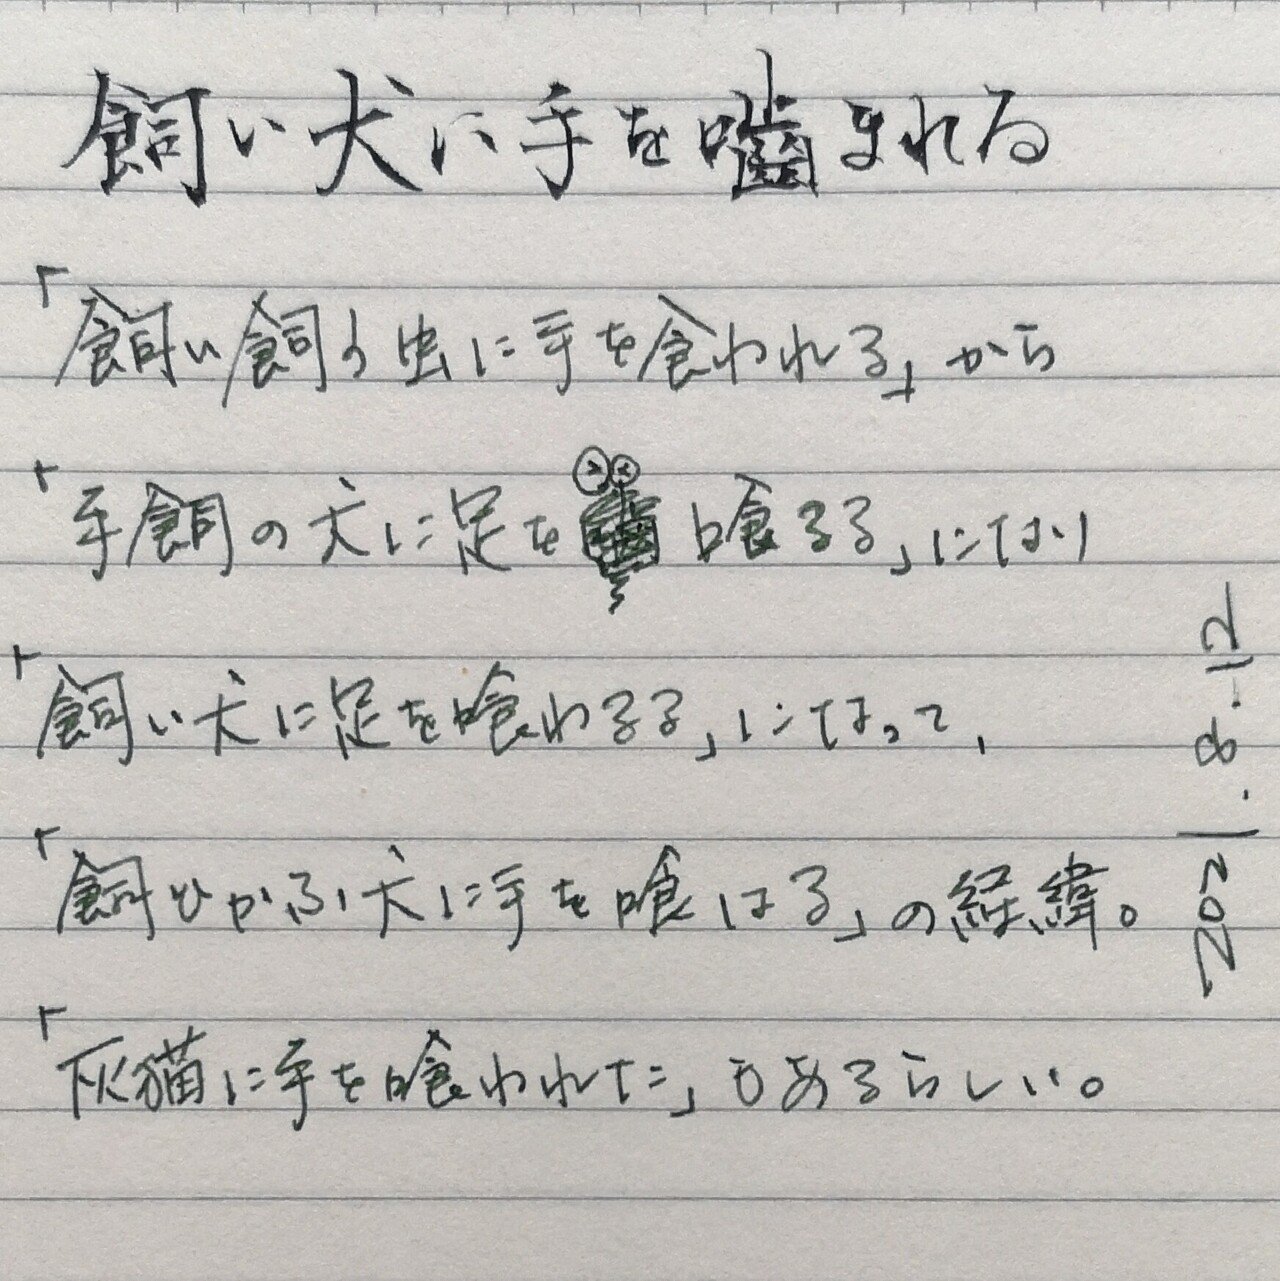 飼い犬に手を噛まれる
「飼い飼う虫に手を食われる」から
「手飼の犬に足を喰るる」になり
「飼い犬に足を喰わるる」になって、
「飼ひかふ犬に手を喰はる」の経緯。
「灰猫に手を喰われた」もあるらしい。
2021.8.12